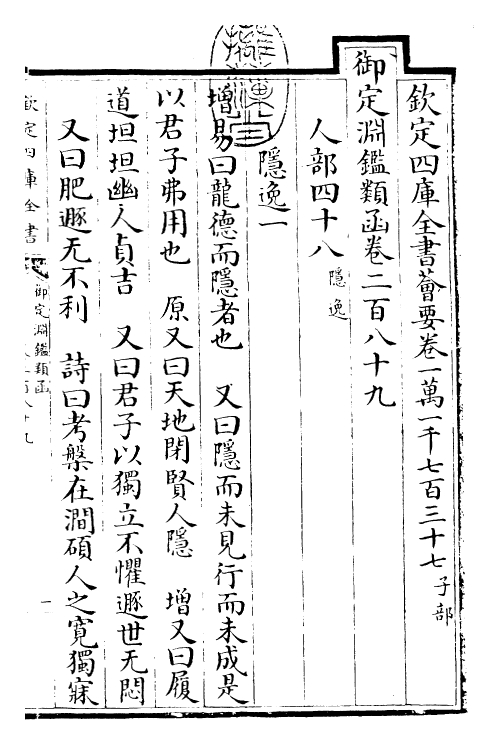 欽定四庫全書薈要卷一萬一千七百三十七子部
御定淵鑑類函卷二百八十九
人部四十八隱逸
隱逸一
增易曰龍德而隱者也　又曰隱而未見行而未成是
以君子弗用也　原又曰天地閉賢人隱　增又曰履
道坦坦幽人貞吉　又曰君子以獨立不懼遯世无悶
又曰肥遯无不利　詩曰考槃在澗碩人之寛獨寐
欽定四庫全書　御定淵鑑類函　一